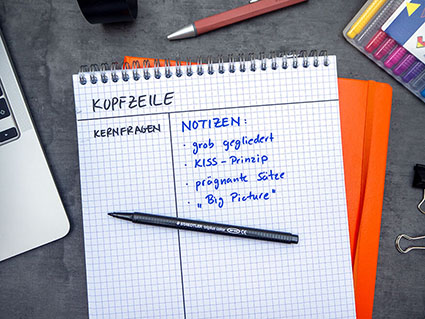 KOPFZEILE
KERNFRAGEN
NOTIZEN:
· grob gegliedert
· KISS - Prinzip
· prägnante Sätze
· „Big Picture"
STAEDTLER triplus color